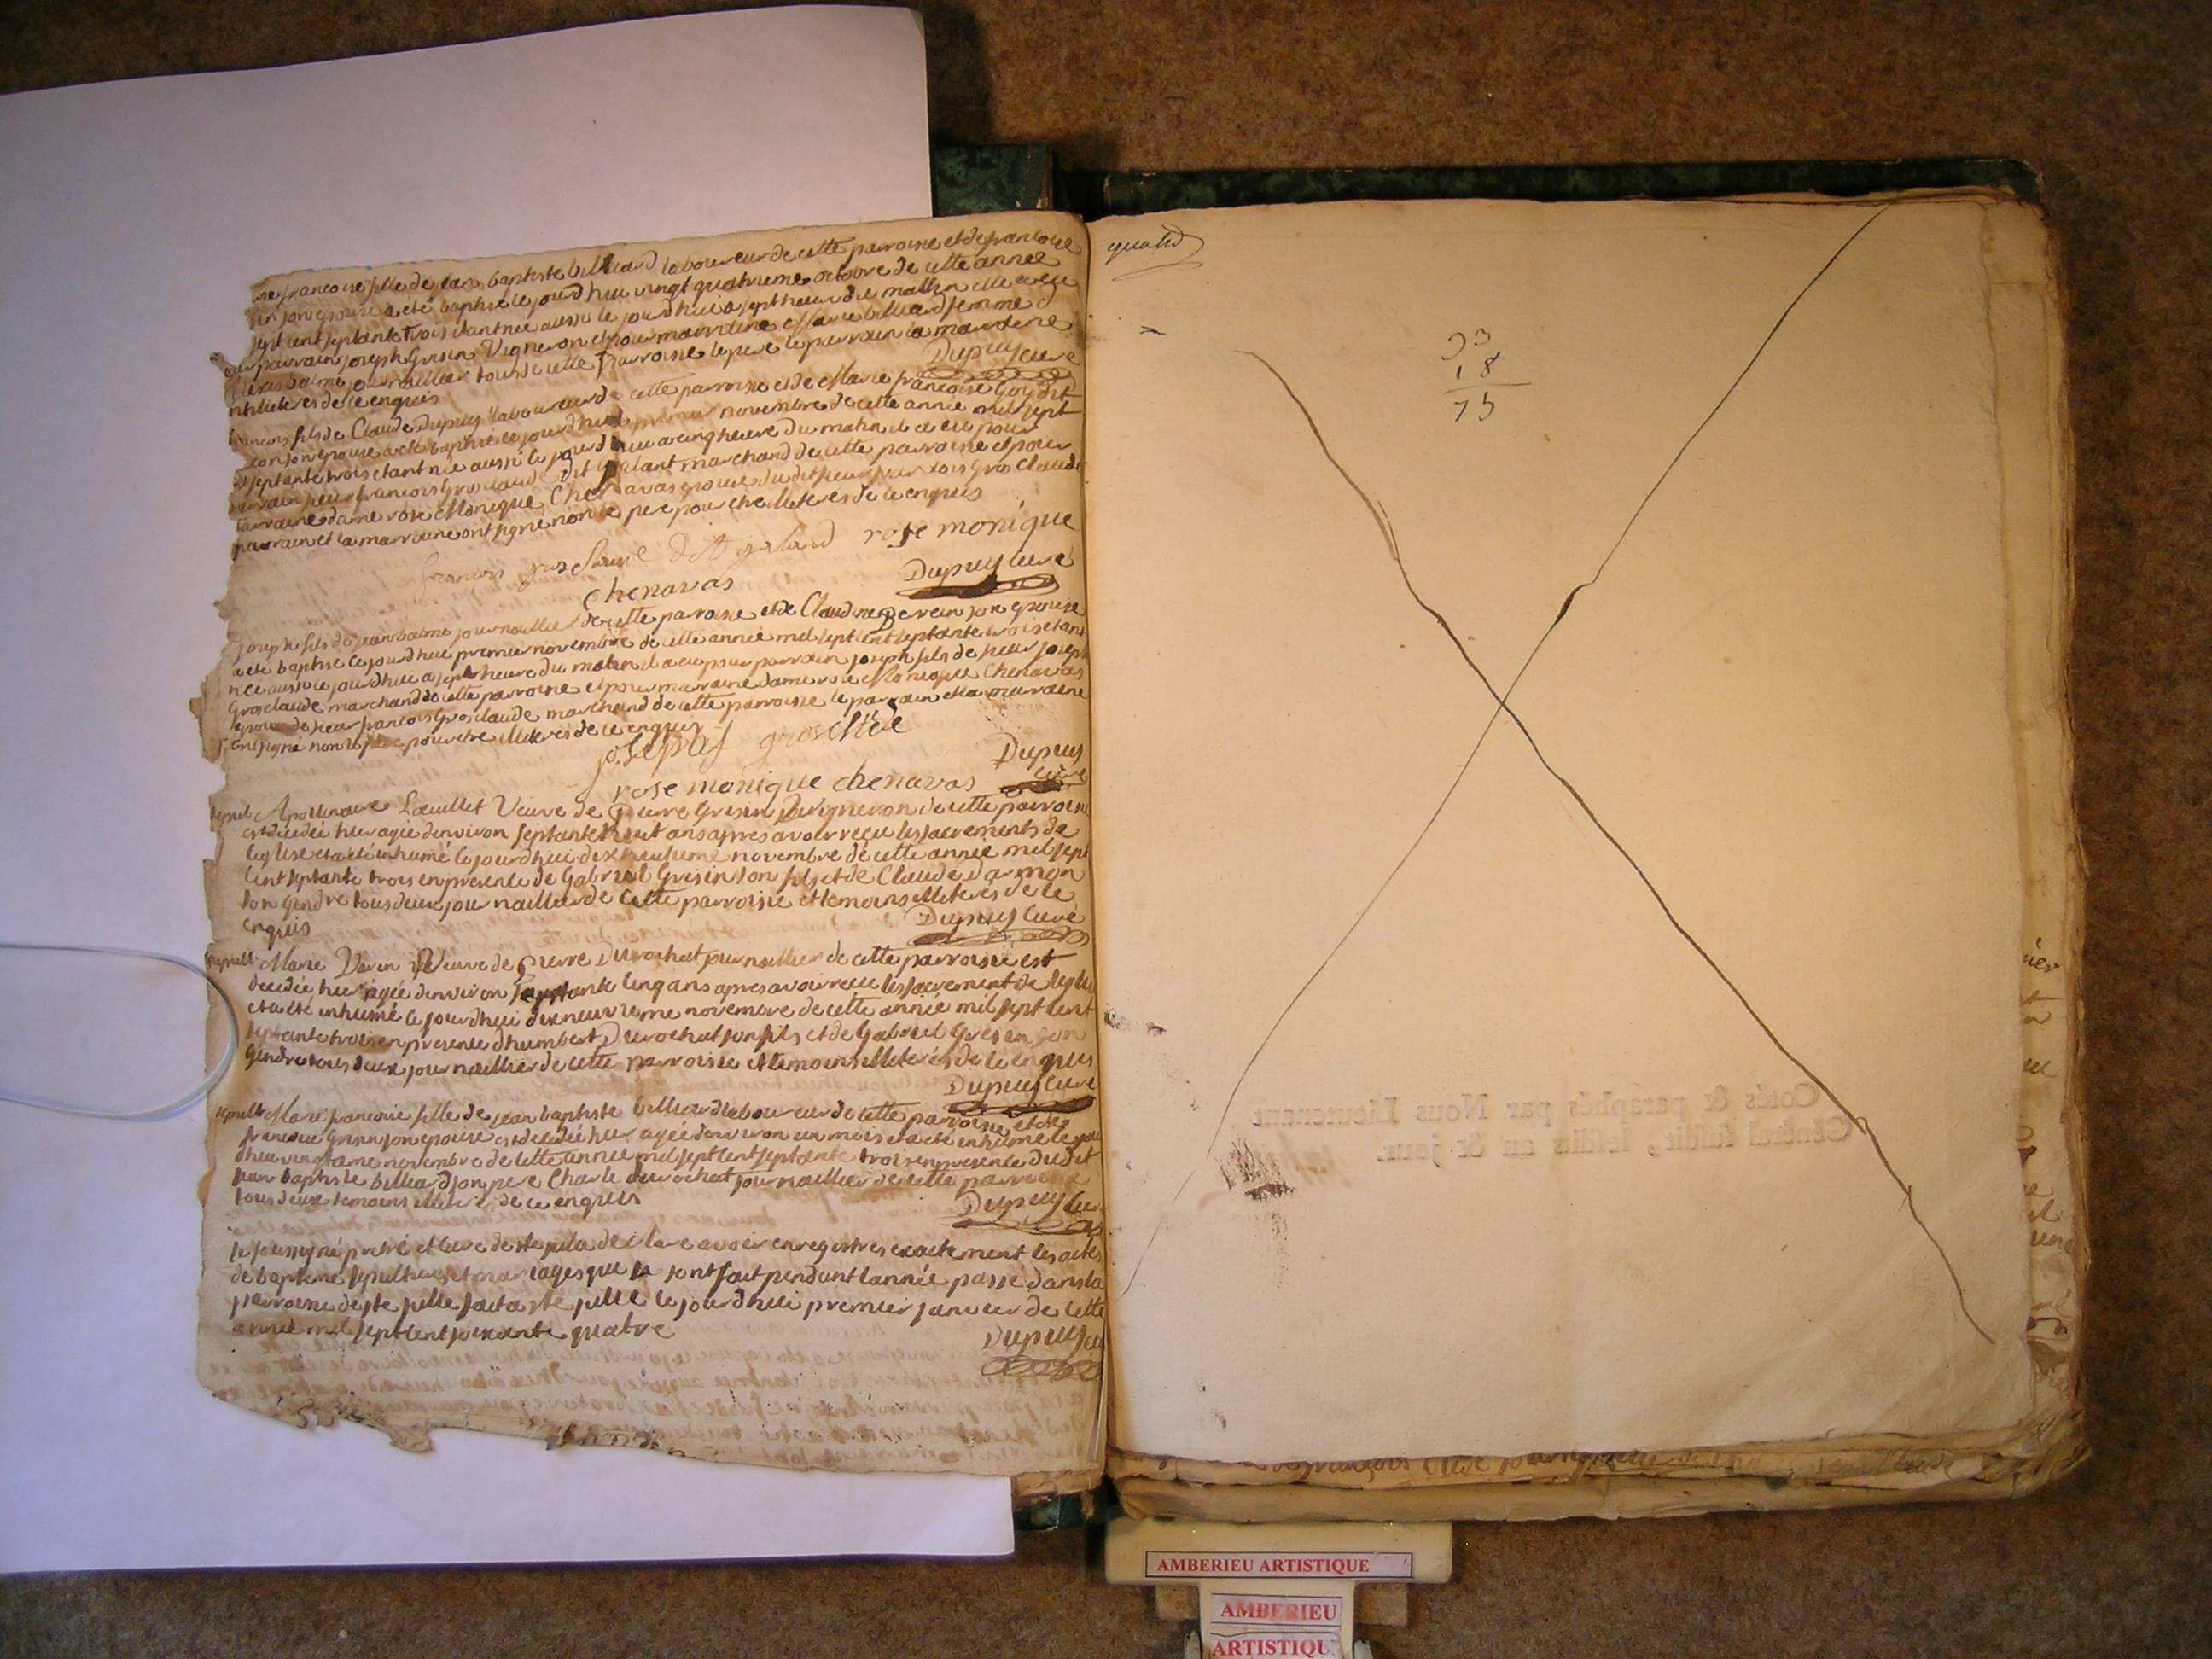 rie francoise fille de jean baptiste billiard laboureur de cette parroisse et de francoise
sin son epouse a eté baptisé le jourd'hui vingt quatrieme octobre de cette année
sept cent septante trois etant née aussi le jourd'hui a sept heur du matin elle a eu
pour parrain joseph Grisin Vigneron et pour marraine Marie billiard femme d
balme journaillier tous de cette parroisse le pere le parrain la marraine
illiteres de ce enquis
Dupuy curé
francois fils de Claude Dupuy laboureur de cette parroisse et de Marie francoise Goy dit
son epouse a eté baptisé le jourd'hui premier novembre de cette année mil sept
septante trois etant née aussi le jourd'hui a cinq heure du matin il a eu pour
parrain sieur francois Grosclaude dit galant marchand de cette parroisse et pour
marraine dame rose Monique Chenavas epouse du dit sieur francois Gros Claude
parrain et la marraine ont signé non le pere pour etre illiteres de ce enquis
francois gros Claude dit galand rose monique
chenavas
Dupuy curé
joseph fils de jean balme journaillier de cette parroisse et de Claudine Bevein son epouse
a eté baptisé le jourd'hui premier novembre de cette année mil sept cent septante trois etant
née aussi le jourd'hui a sept heure du matin il a eu pour parrain joseph fils de sieur joseph
Grosclaude marchand de cette parroisse et pour marraine dame rose Monique Chenavas
epouse de sieur francois Grosclaude marchand de cette parroisse le parrain et la marraine
ont signé non le pere pour etre illiteres de ce enquis
joseph grosclæde
Dupuy
curé
rose monique chenavas
sepul Apollinaire Lœuillet Veuve de Pierre Grisin Vigneron de cette parroisse
est decedée hier agée d'environ septante huit ans apres avoir reçu les sacrements de
l'eglise et a eté inhumé le jourd'hui dixneufieme novembre de cette année mil sept
cent septante trois en presence de Gabriel Grisin son fils et de Claude Darmon
son gendre tous deux journaillier de cette parroisse et temoins illiteres de ce
enquis
Dupuy Curé
sepult Marie Vevin Veuve de Pierre Durochat journaillier de cette parroisse est
decedée hier agée d'environ septante cinq ans apres avoir recu les sacrement de l'eglise
et a eté inhumé le jourd'hui dixneuvieme novembre de cette année mil sept cent
septante trois en presence d'humbert Durochat son fils et de Gabriel Grisin son
gendre tous deux journaillier de cette parroisse et temoins illiterés de ce enquis
Dupuy curé
sepult Marie francoise fille de jean baptiste billiard laboureur de cette parroisse et de
francoise Grisin son epouse est decedée hier agée d'environ un mois et a eté inhumé le jour
d'hui vingtieme novembre de cette année mil sept cent septante trois en presence du dit
jean baptiste billiard son pere Charle durochat journaillier de cette parroisse
tous deux temoins illiteré de ce enquis
Dupuy Curé
je soussigné pretre et curé de ste julie declare avoir enregistres exactement les actes
de bapteme sepultures et mariages que se sont fait pendant l'année passé dans la
parroisse de ste julie fait a ste julie le jourd'hui premier janvier de cette
année mil sept cent soixante quatre
Dupuy cu
18
75
Cotés & paraphés par Nous Lieutenant
Général susdit, lesdits an & jour.
AMBERIEU ARTISTIQUE
AMBERIEU
ARTISTIQU